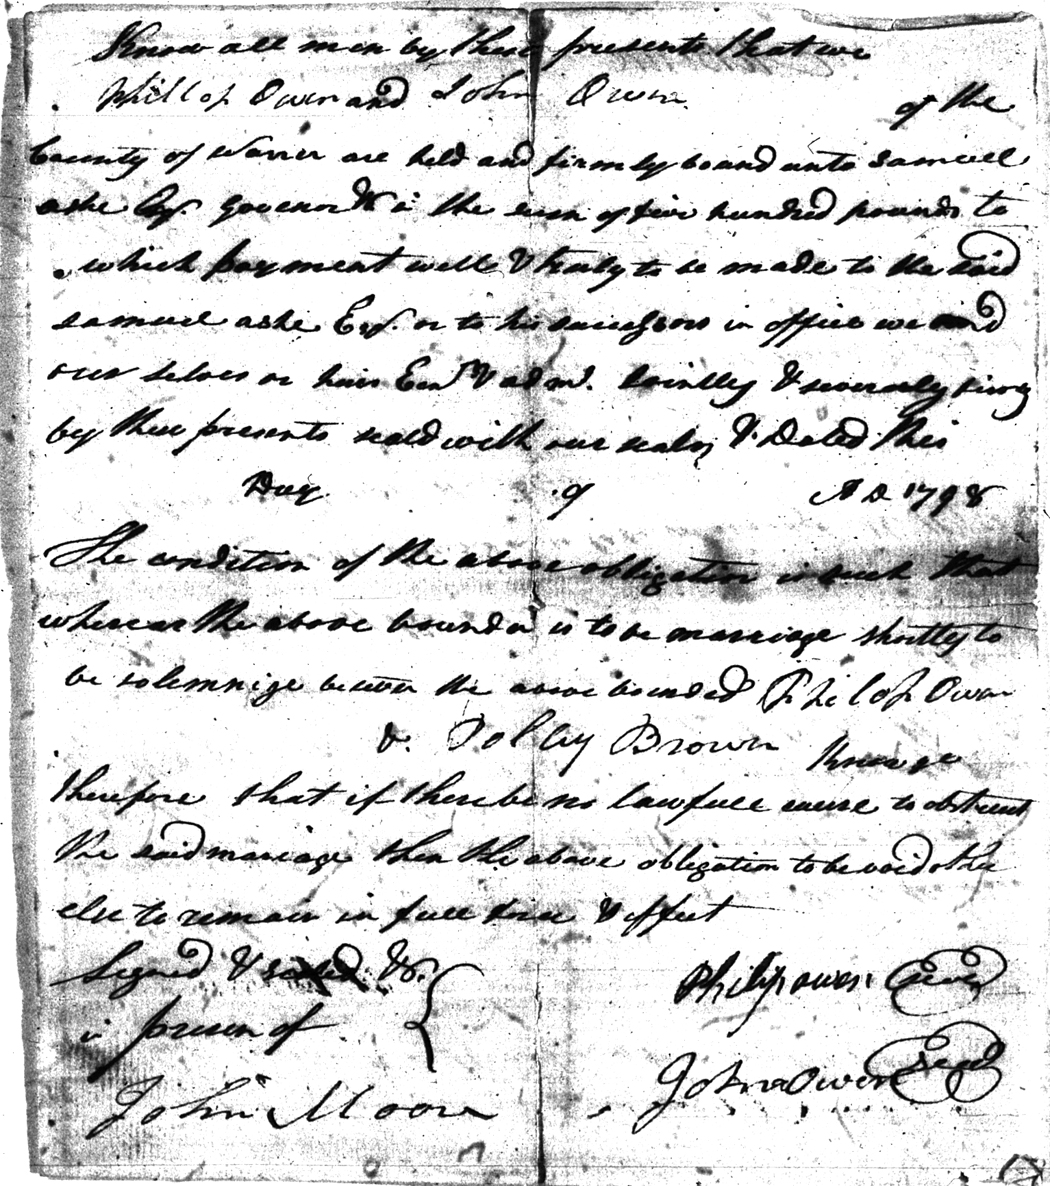 Know all men by these presents that we
Phillop Owen and John Owen of the
County of are held and firmly bound unto Samuel
ashe Esqr. Govenor &c in the sum of five hundred pounds to
which payment well & truly to be made to the said
Samuel ashe Esqr. or to his successors in office we bind
our selves or heirs Exrs & adms. Jointly & severaly firmly
by these presents seald with our seals & Dated this
Day of A D 1798
The condition of the above obligation is such that
whereas the above bounden is to be marriage shortly to
be solemnize between the above bounded Philop Owen
& Polley Brown Know ye
therefore that if there be no lawfull cause to obstruct
the said mariage then the above obligation to be void othe
else to remain in full force & effect
Signed & sealed &c.
in presen of
Philip owen Seal
John Owen Seal
John Moore